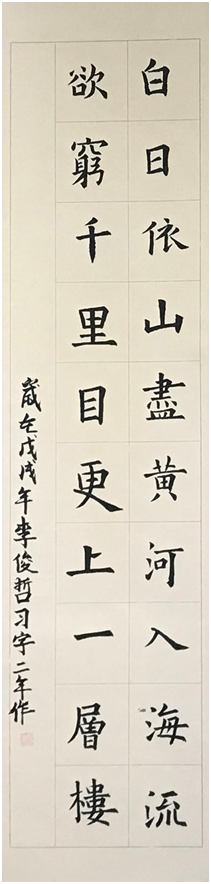 白日依山盡黄河入海流
欲窮千里目更上一層樓
歲在戊戌年李俊哲习字二年作